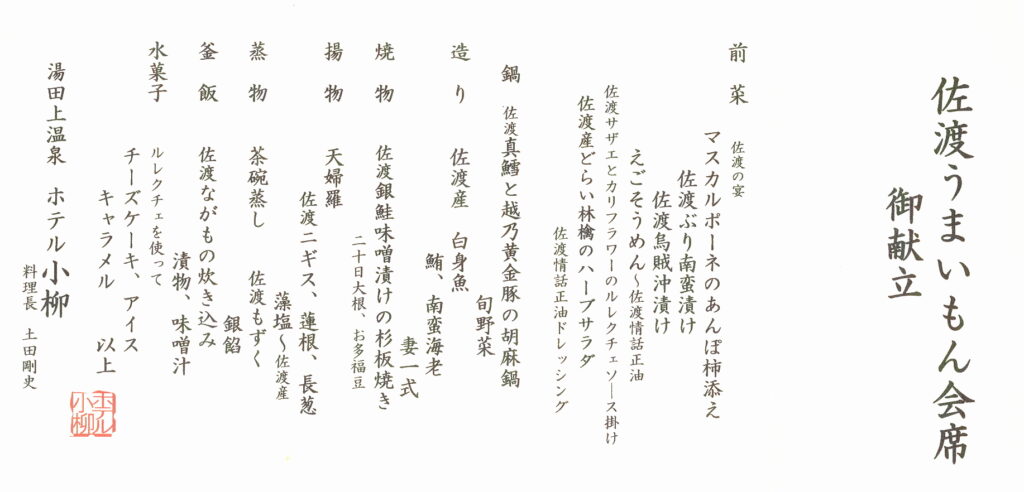 佐渡うまいもん会席
御献立
前菜 佐渡の宴
マスカルポーネのあんぽ柿添え
佐渡ぶり南蛮漬け
佐渡烏賊沖漬け
えごそうめん～佐渡情話正油
佐渡サザエとカリフラワーのルレクチェソース掛け
佐渡産どらい林檎のハーブサラダ
佐渡情話正油ドレッシング
鍋 佐渡真鱈と越乃黄金豚の胡麻鍋
旬野菜
造り 佐渡産 白身魚
鮪、南蛮海老
妻一式
焼物 佐渡銀鮭味噌漬けの杉板焼き
二十日大根、お多福豆
揚物 天婦羅
佐渡ニギス、蓮根、長葱
藻塩～佐渡産
蒸物 茶碗蒸し 佐渡もずく
銀餡
釜飯 佐渡ながもの炊き込み
漬物、味噌汁
水菓子 ルレクチェを使って
チーズケーキ、アイス
キャラメル 以上
湯田上温泉 ホテル小柳
料理長 土田剛史
ホテル
小柳